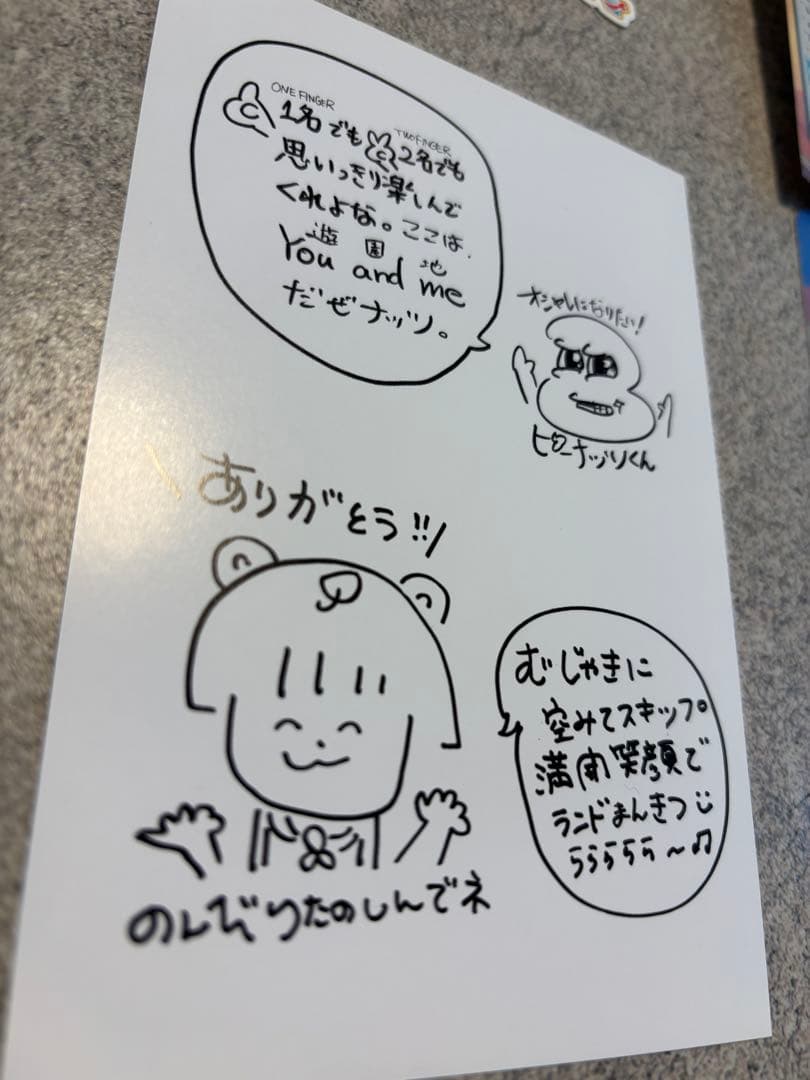 ONE FINGER
TWO FINGER
1名でも 2名でも
思いっきり楽しんで
くれよな。ここは、
遊園地
You and me
だぜナッツ。
オシャレになりたい!
ピーナッツくん
ありがとう!!
むじゃきに
空みてスキップ。
満面笑顔で
ランドまんきつ
ららららら〜♫
のんびりたのしんでネ